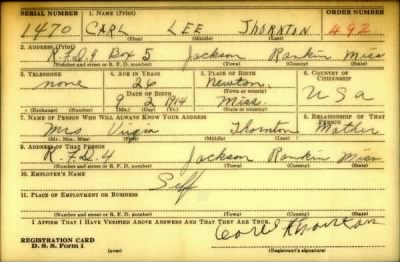 SERIAL NUMBER 1. NAME (Print) ORDER NUMBER
1470 CARL LEE THORNTON 492
(First) (Middle) (Last)
2. ADDRESS (Print)
R.F.D.4 Box 5 Jackson Rankin Miss
(Number and street or R. F. D. number) (Town) (County) (State)
3. TELEPHONE 4. AGE IN YEARS 5. PLACE OF BIRTH 6. COUNTRY OF CITIZENSHIP
none 26 Newton, U S A
DATE OF BIRTH (Town or county)
9 2 1914 Miss.
(Exchange) (Number) (Mo.) (Day) (Yr.) (State or country)
7. NAME OF PERSON WHO WILL ALWAYS KNOW YOUR ADDRESS 8. RELATIONSHIP OF THAT PERSON
Mrs Thornton Mother
(Mr., Mrs., Miss) (First) (Middle) (Last)
9. ADDRESS OF THAT PERSON
R.F.D.4 Jackson Rankin Miss
(Number and street or R. F. D. number) (Town) (County) (State)
10. EMPLOYER'S NAME
Self
11. PLACE OF EMPLOYMENT OR BUSINESS
(Number and street or R. F. D. number) (Town) (County) (State)
I AFFIRM THAT I HAVE VERIFIED ABOVE ANSWERS AND THAT THEY ARE TRUE.
REGISTRATION CARD Carl Thornton
D. S. S. Form 1 (over) (Registrant's signature)